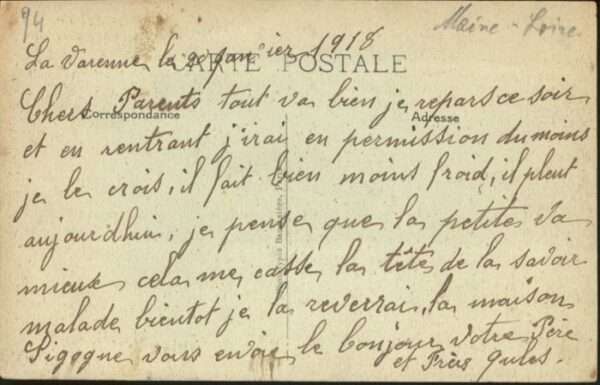 94
Maine-Loire
La Varenne le 20 janvier 1918
CARTE POSTALE
Chers Parents tout va bien je repars ce soir
Correspondance
Adresse
et en rentrant j'irai en permission du moins
je le crois, il fait bien moins froid, il pleut
aujourdhui, je pense que la petites va
mieux cela me casse la tête de la savoir
malade bientot je la reverrai, la maison
Sigogne vous envoie le bonjour, votre Père
et Frère Jules.